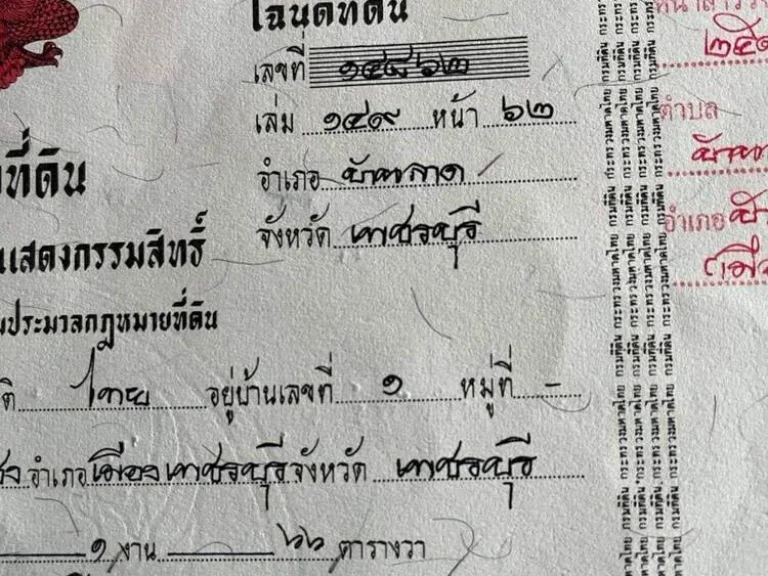 โฉนดที่ดิน
เลขที่ ๑๔๘๖๒
เล่ม ๑๔๙ หน้า ๖๒
อำเภอ บ้านลาด
จังหวัด เพชรบุรี
ที่ดิน
แสดงกรรมสิทธิ์
ประมวลกฎหมายที่ดิน
ไทย อยู่บ้านเลขที่ ๑ หมู่ที่ -
อำเภอ เมืองเพชรบุรี จังหวัด เพชรบุรี
๑ งาน ๖๖ ตารางวา
ตำบล
อำเภอ
กรมที่ดิน